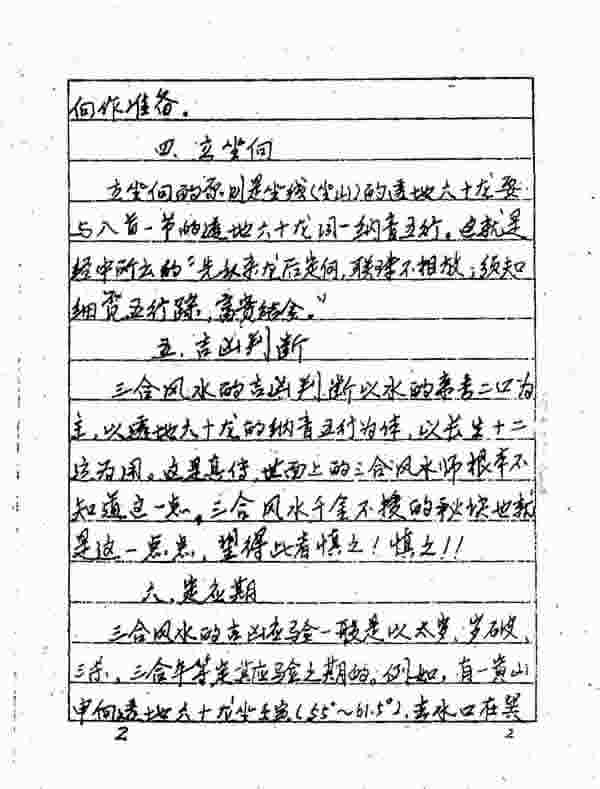 向作准备。
四、立坐向
立坐向的原则是坐线(坐山)的透地六十龙要
与入首一节的透地六十龙同一纳音五行。这就是
经中所云的“先认来龙后定向,联珠不相放;须知
细觅五行踪,富贵结全。”
五、吉凶判断
三合风水的吉凶判断以水的来去二口为
主,以透地六十龙的纳音五行为体,以长生十二
运为用。这是真传,世面上的三合风水师根本不
知道这一点。三合风水千金不传的秘诀也就
是这一点点,望得此者慎之!慎之!!
六、定应期
三合风水的吉凶应验一般是以太岁、岁破、
三煞、三合年等定其应验之期的。例如,有一寅山
申向透地六十龙坐(55°~61.5°),去水口在巽
2
2